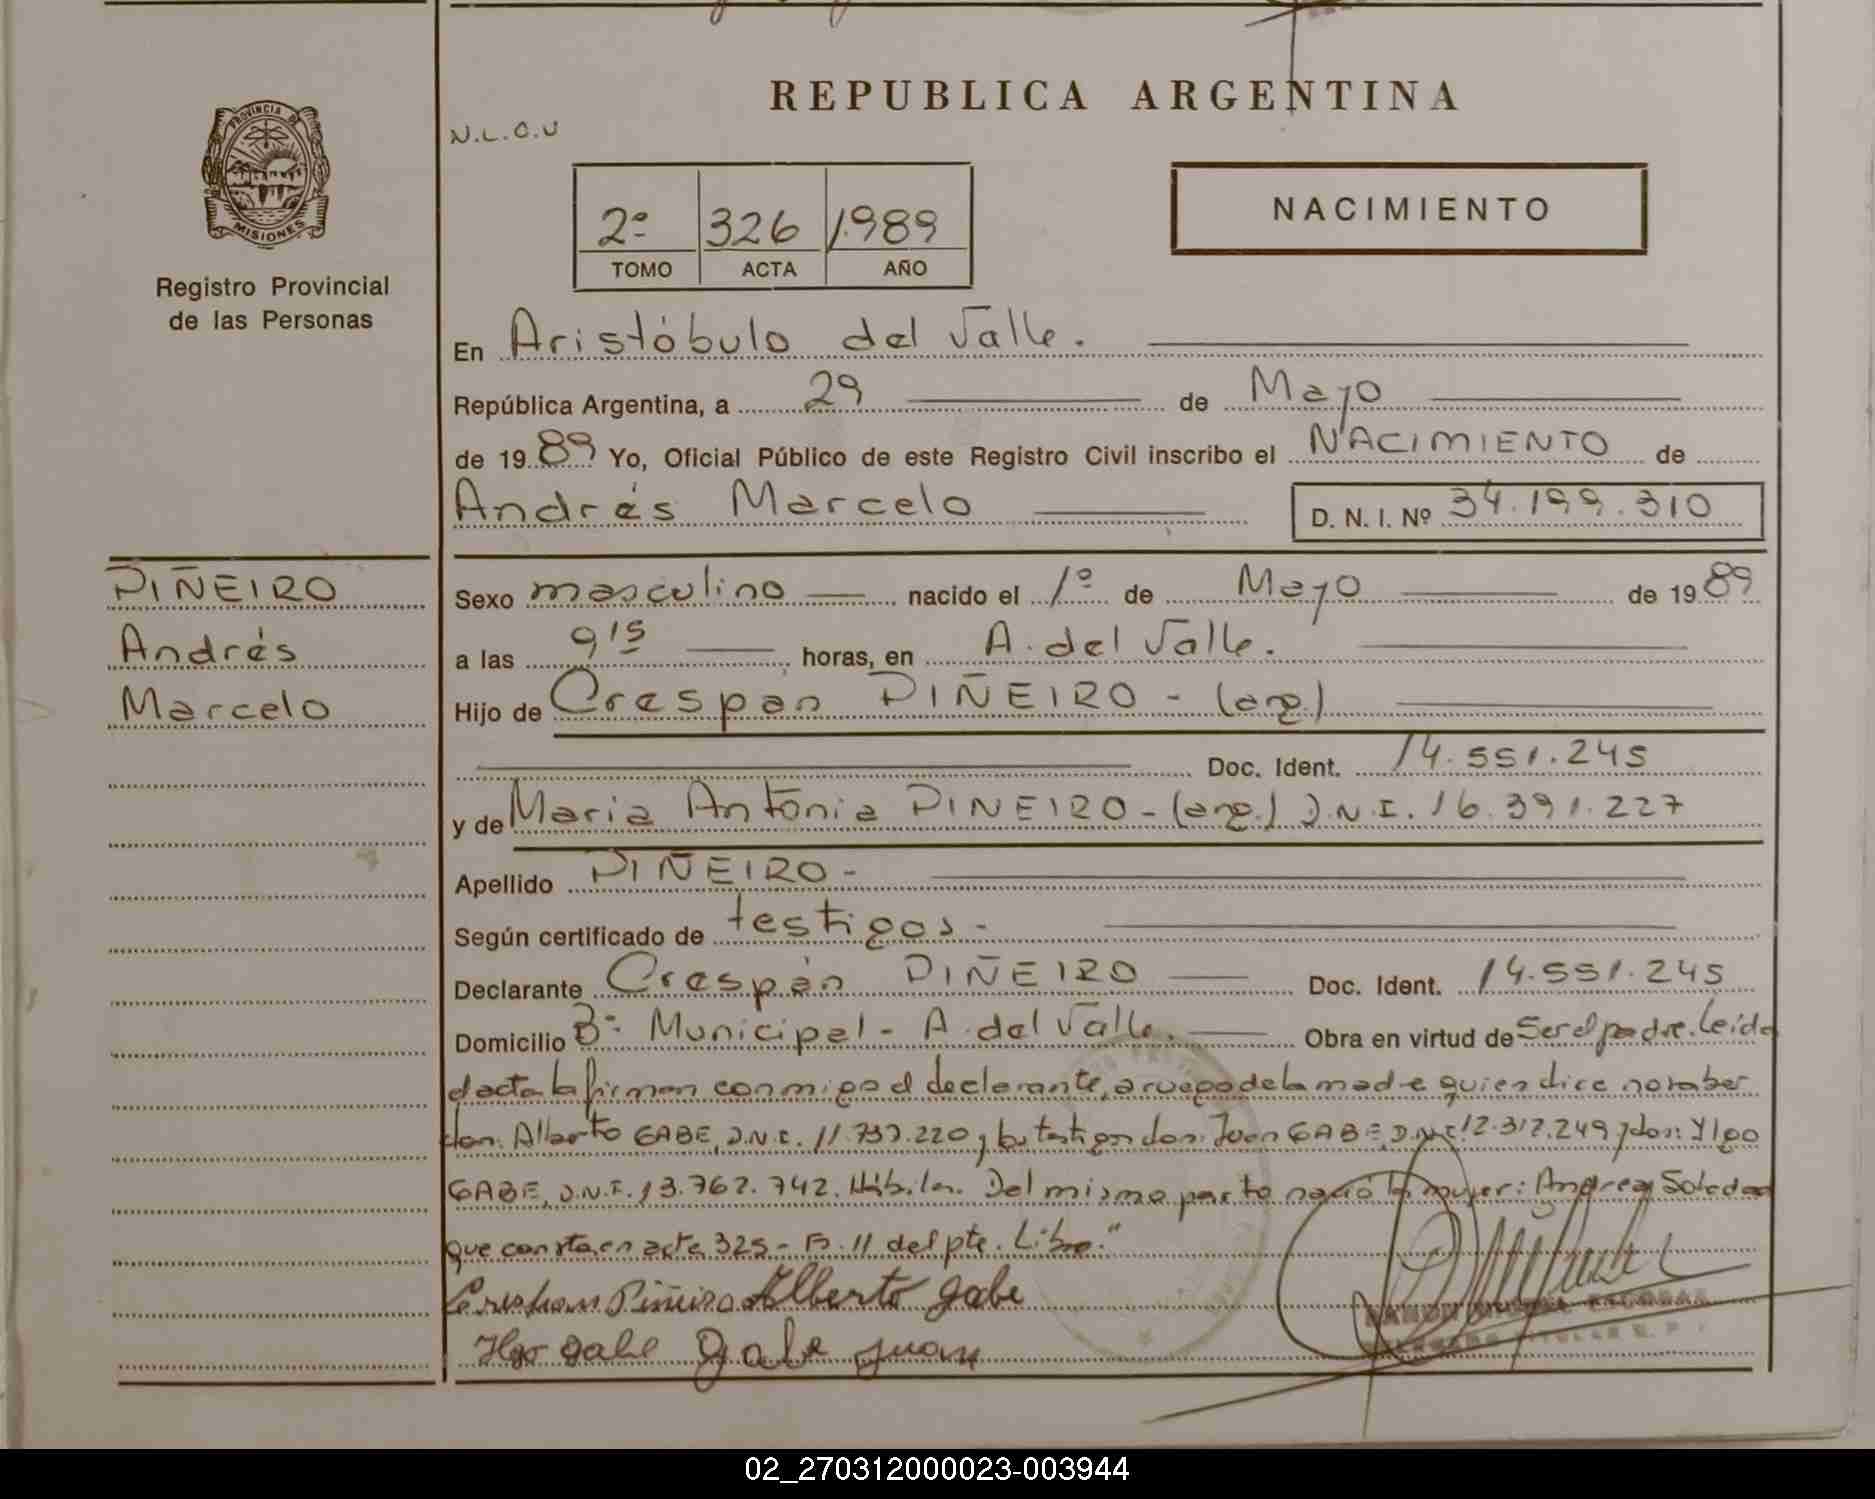 REPUBLICA ARGENTINA
N.L.O.U
PROVINCIA DE
MISIONES
Registro Provincial
de las Personas
2º 326 1.989
TOMO ACTA AÑO
NACIMIENTO
En Aristóbulo del Valle.
República Argentina, a 29 de Mayo
de 1989 Yo, Oficial Público de este Registro Civil inscribo el NACIMIENTO de
Andrés Marcelo D. N. I. Nº 34.199.310
PIÑEIRO
Andrés
Marcelo
Sexo masculino nacido el 1º de Mayo de 1989
a las 9 15 horas, en A. del Valle.
Hijo de Crespan PIÑEIRO - (arg.)
Doc. Ident. 14.551.245
y de Maria Antonia PINEIRO - (arg.) D.N.I. 16.391.227
Apellido PIÑEIRO -
Según certificado de testigos -
Declarante Crespán PIÑEIRO Doc. Ident. 14.551.245
Domicilio Bº Municipal - A. del Valle. Obra en virtud de Ser el padre. Leída
el acta la firman conmigo el declarante, a ruego de la madre quien dice no saber
don: Alberto GABE, D.N.I. 11.737.220 y los testigos don: Juan GABE D.N.I. 12.312.249 y don: Ylgo
GABE, D.N.I. 13.762.742. Hábiles. Del mismo parto nació la mujer: Andrea Soledad
que consta en acta 325 - F. 11 del pte. Libro."
Piñeiro Alberto gabe
gabe gabe juan
02_270312000023-003944